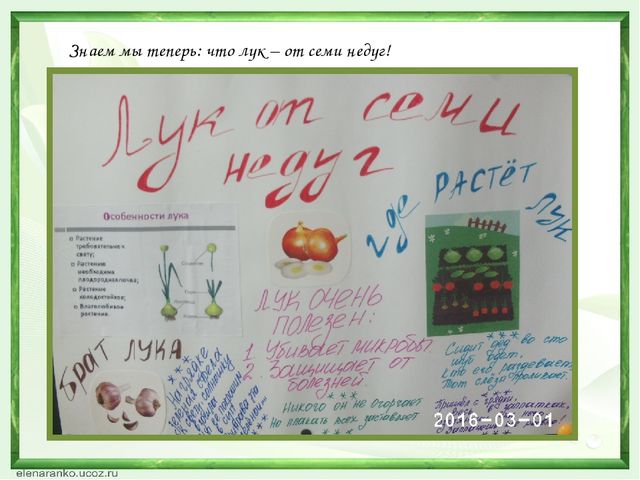 Знаем мы теперь: что лук – от семи недуг!
Лук от семи
недуг
где РАСТЁТ ЛУК
Особенности лука
Растение
требовательное к
свету;
Растение
необходима
плодородная почва;
Растение
холодостойкое;
Влаголюбивое
растение.
ЛУК ОЧЕНЬ
ПОЛЕЗЕН:
1. Убивает микробы.
2. Защищает от
болезней.
БРАТ ЛУКА
***
На грядке
***
Никого он не огорчает
Но плакать всех заставляет
***
***
Сидит дед во сто
шуб одет,
Кто его раздевает,
Тот слёзы проливает.
***
Пришёл с грядки,
2016-03-01
elenaranko.ucoz.ru